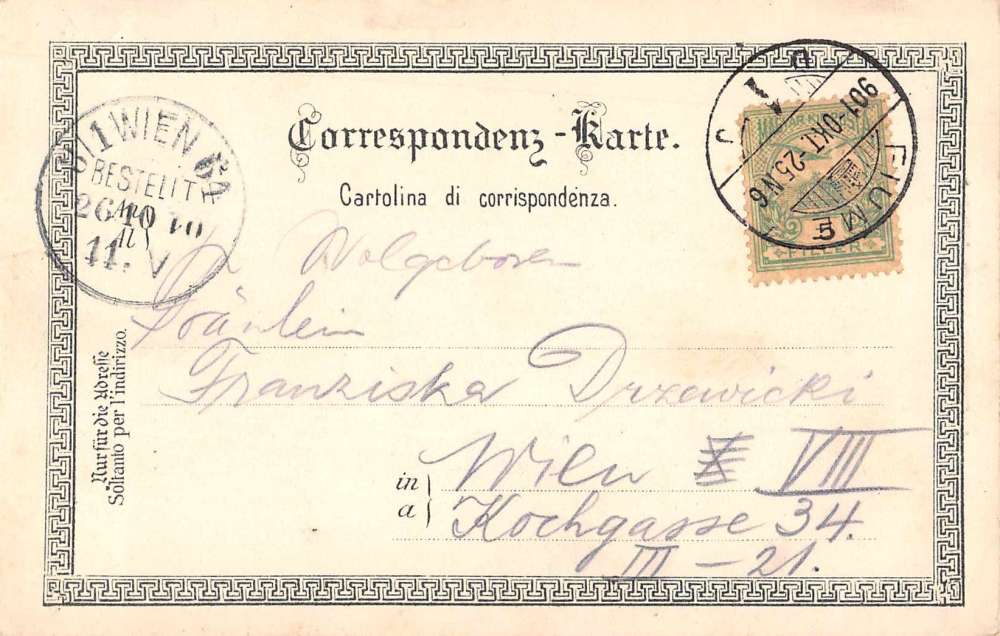 Correspondenz-Karte.
Cartolina di corrispondenza.
8/1 WIEN 64
BESTELLT
26 10 10
11. V
FIUME
901-OKT.-25 N6
5
FILLÉR
Wolgeboren
Fräulein
Franziska Drzewicki
in Wien VIII
a Kochgasse 34.
III - 21.
Nur für die Adresse
Soltanto per l'indirizzo.